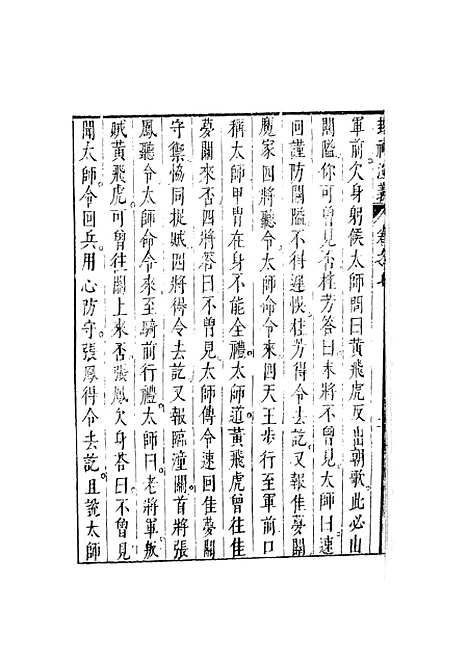 封神演義 卷之七
軍前欠身躬候太師問曰黃飛虎反出朝歌此必由
關隘你可曾見否桂芳答曰末將不曾見太師曰速
回謹防關隘不得遲悞桂芳得令去訖又報佳夢關
魔家四將聽令太師命令來四天王步行至軍前口
稱太師甲冑在身不能全禮太師道黃飛虎曾往佳
夢關來否四將答曰不曾見太師傳令速回佳夢關
守禦協同捉賊四將得令去訖又報臨潼關首將張
鳳聽令太師命令來至騎前行禮太師曰老將軍叛
賊黃飛虎可曾往關上來否張鳳欠身荅曰不曾見
聞太師令回兵用心防守張鳳得令去訖且說太師